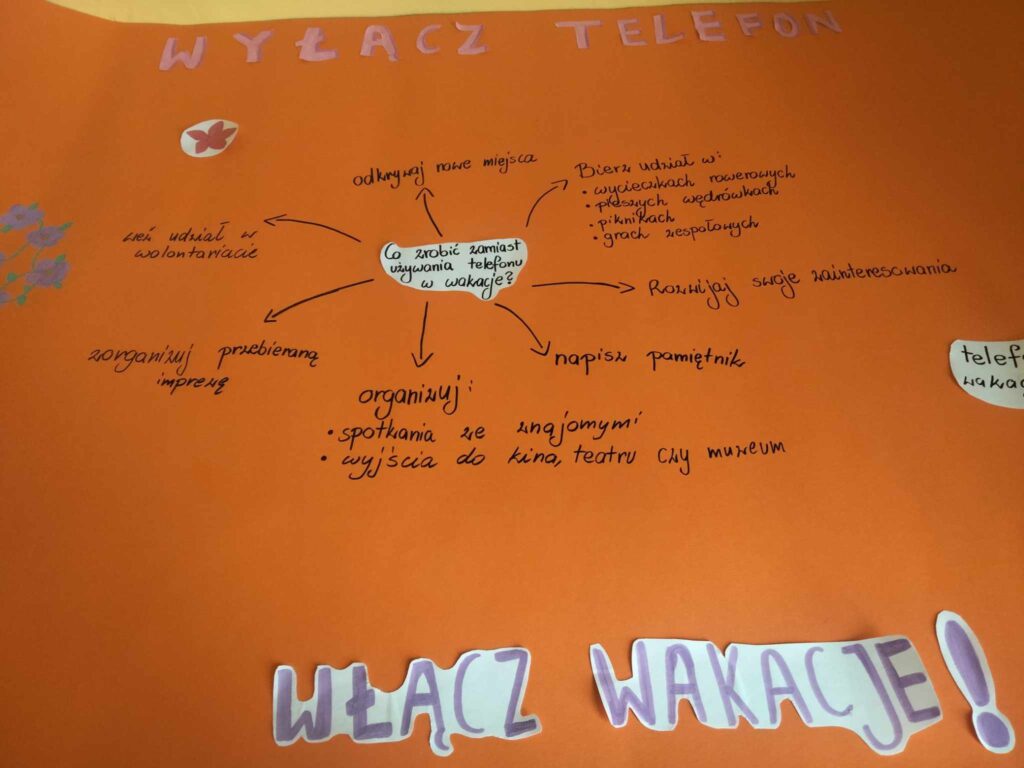 WYŁĄCZ TELEFON
odkrywaj nowe miejsca
Bierz udział w:
• wycieczkach rowerowych
• pieszych wędrówkach
• piknikach
• grach zespołowych
weź udział w
wolontariacie
Co zrobić zamiast
używania telefonu
w wakacje?
Rozwijaj swoje zainteresowania
zorganizuj przebieraną
imprezę
napisz pamiętnik
organizuj:
• spotkania ze znajomymi
• wyjścia do kina, teatru czy muzeum
WŁĄCZ WAKACJE!